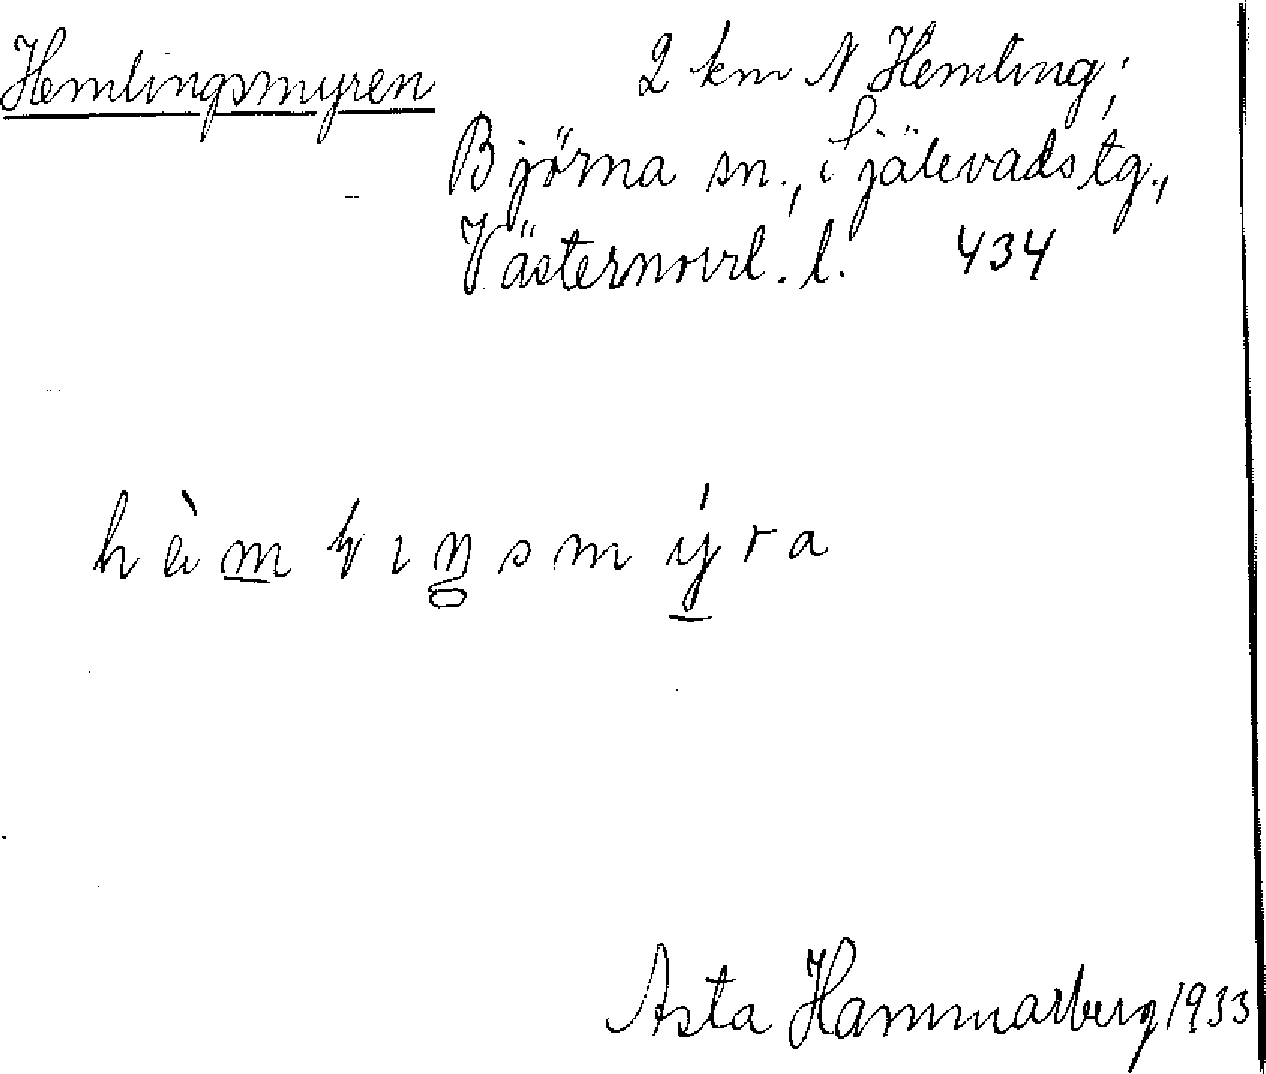 Hemlingsmyren
2 km N Hemling;
Björna sn., Själevads tg.,
Västernorrl. l. 434
Asta Hammarberg 1933